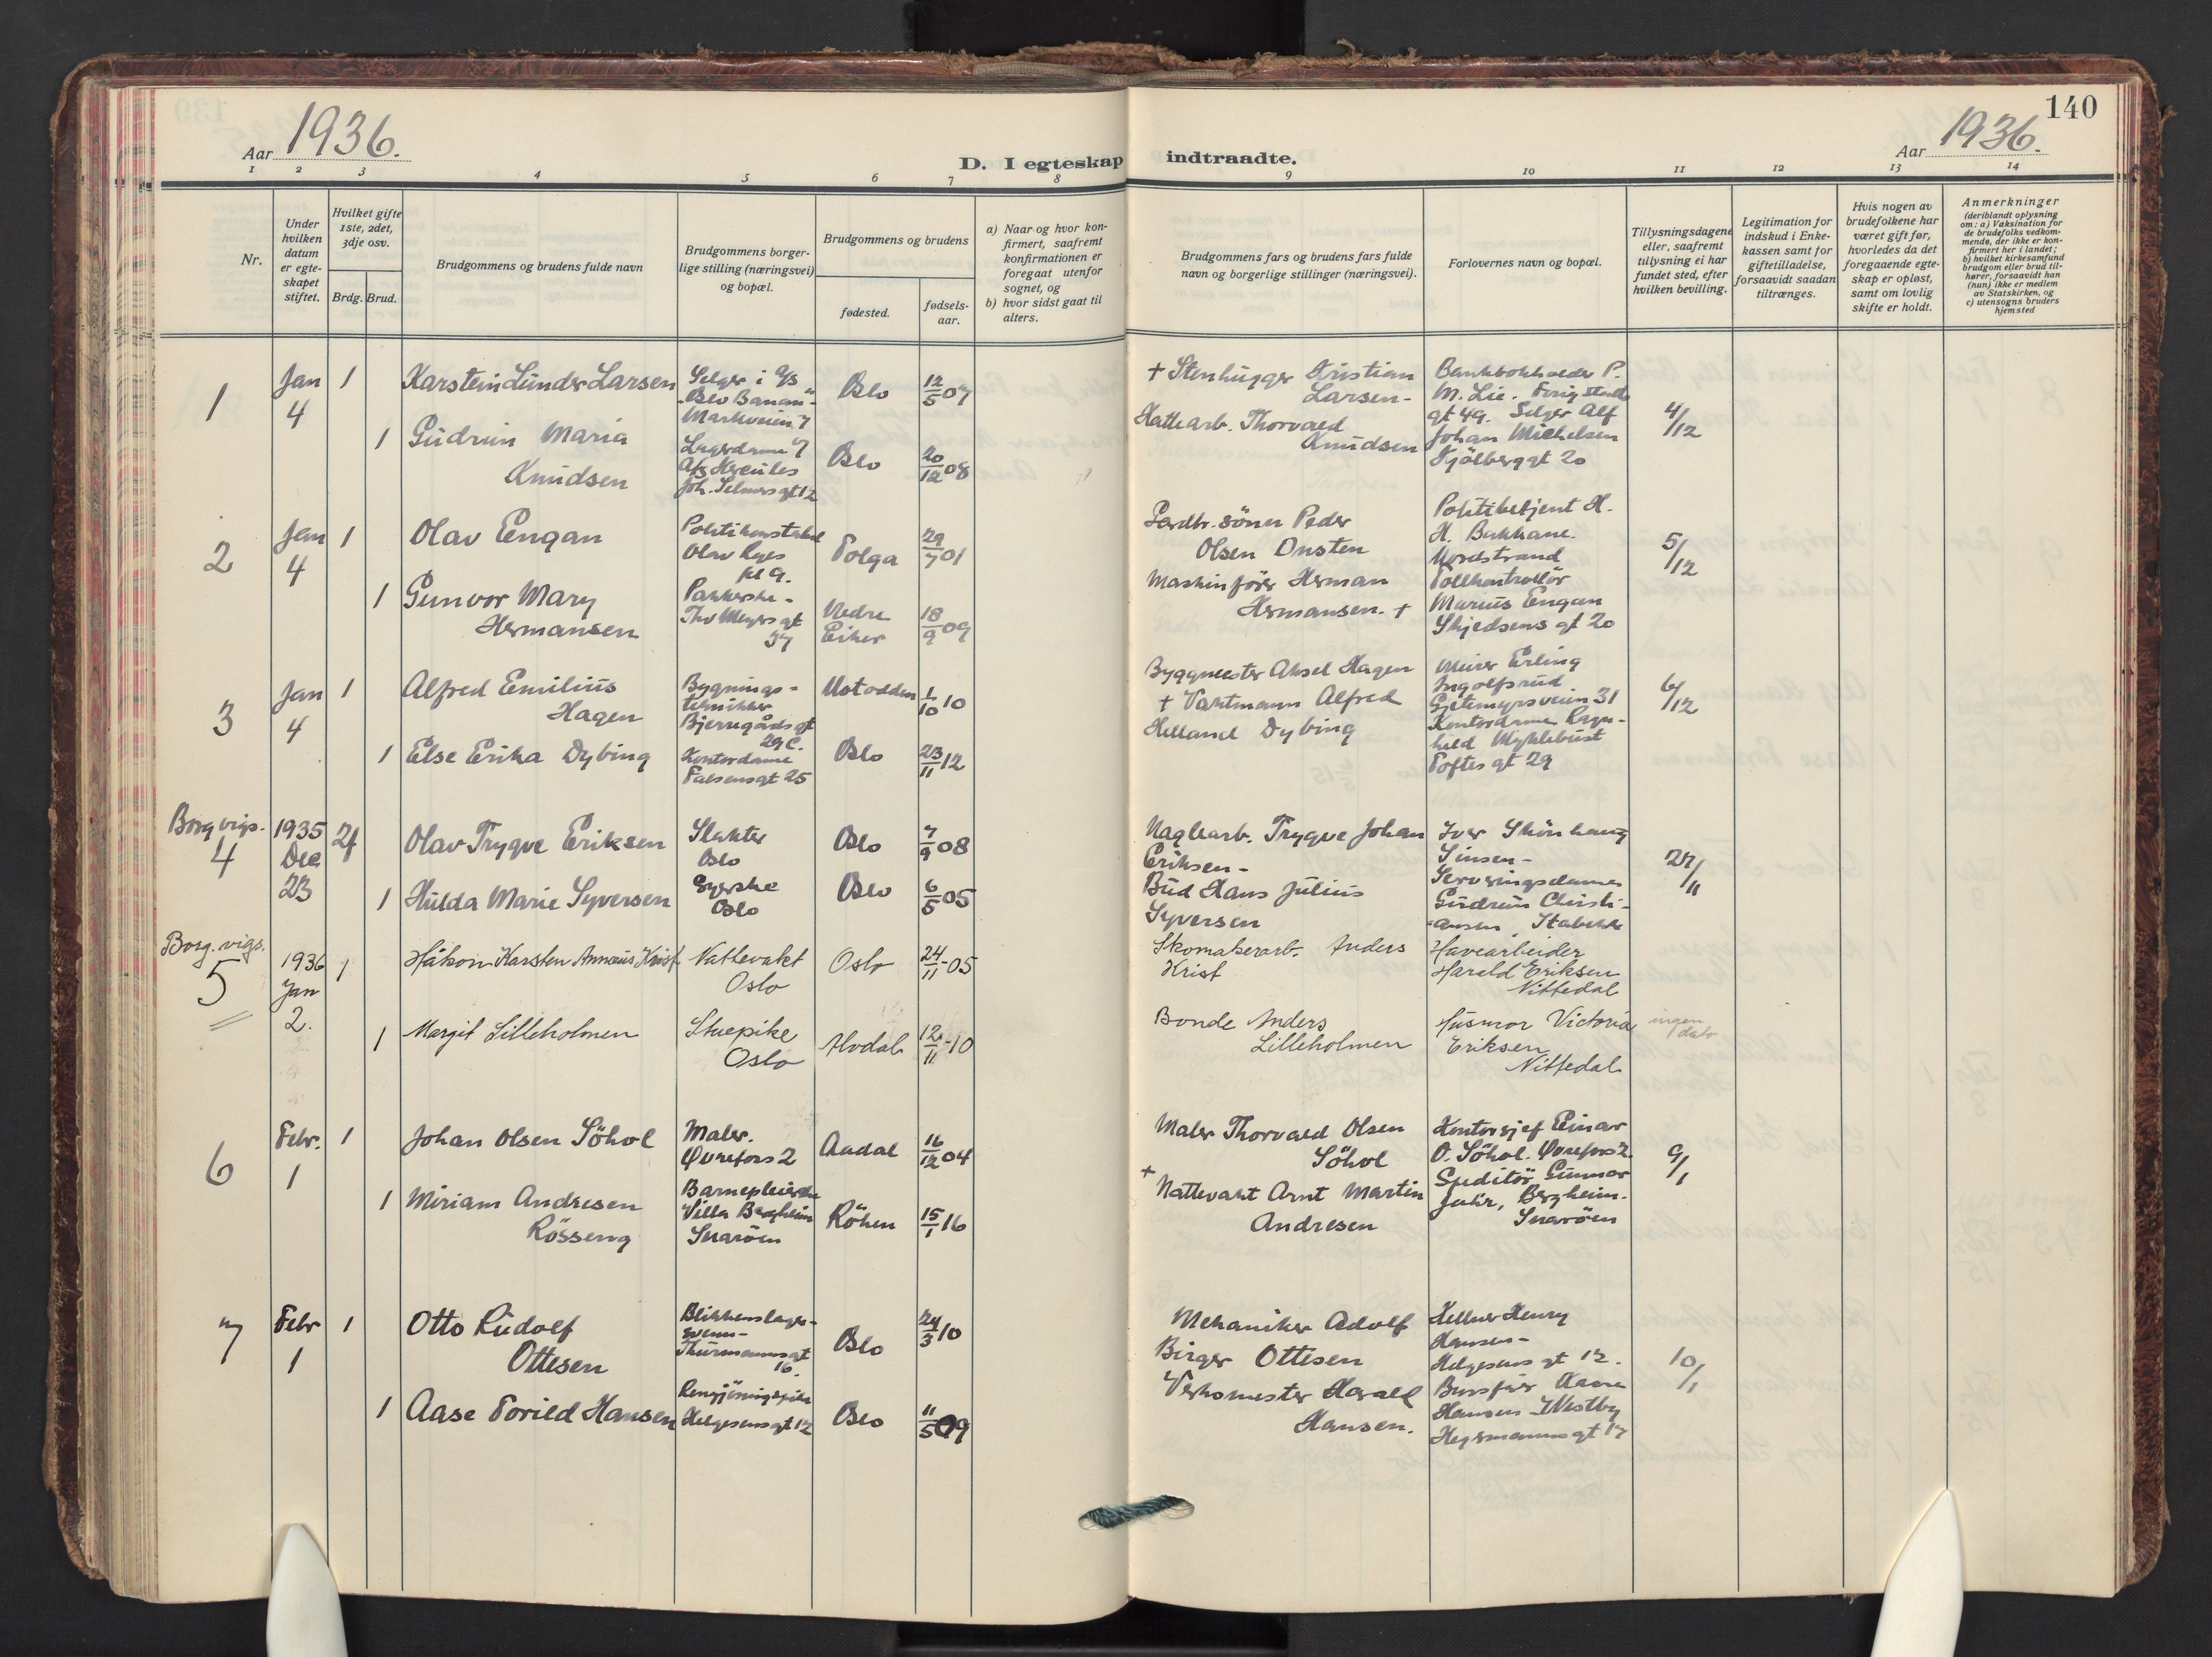 Aar 1936.
D. I egteskap indtraadte.
Aar 1936.
140
1 2 3 4 5 6 7 8 9 10 11 12 13 14
Nr.
Under
hvilken
datum
er egte-
skapet
stiftet.
Hvilket gifte
1ste, 2det,
3dje osv.
Brdg. Brud.
Brudgommens og brudens fulde navn
Brudgommens borger-
lige stilling (næringsvei)
og bopæl.
Brudgommens og brudens
fødested.
fødsels-
aar.
a) Naar og hvor kon-
firmert, saafremt
konfirmationen er
foregaat utenfor
sognet, og
b) hvor sidst gaat til
alters.
Brudgommens fars og brudens fars fulde
navn og borgerlige stillinger (næringsvei).
Forlovernes navn og bopæl.
Tillysningsdagene
eller, saafremt
tillysning ei har
fundet sted, efter
hvilken bevilling.
Legitimation for
indskud i Enke-
kassen samt for
giftetilladelse,
forsaavidt saadan
tiltrænges.
Hvis nogen av
brudefolkene har
været gift før,
hvorledes da det
foregaaende egte-
skap er opløst,
samt om lovlig
skifte er holdt.
Anmerkninger
(deriblandt oplysning
om: a) Vaksination for
de brudefolks vedkom-
mende, der ikke er kon-
firmert her i landet;
b) hvilket kirkesamfund
brudgom eller brud til-
hører, forsaavidt han
(hun) ikke er medlem
av Statskirken, og
c) utensogns bruders
hjemsted
1
Jan
4
1
Karstein Lunder Larsen
Selger i A/S
"Oslo Banan"
Markveien 7
Oslo
12/5 07
1
Gudrun Maria
Knudsen
Lagerdame
A/S Hercules
Joh. Selmersgt 12
Oslo
20/12 08
+ Stenhugger Kristian
Larsen-
Hattearb. Thorvald
Knudsen
Bankbokholder P.
M. Lie.
gt 49. Selger Alf
Johan Michelsen
Kjölberggt 20
4/12
2
Jan
4
1
Olav Engan
Politikonstabel
Olav Ryes
pl 9.
Tolga
29/7 01
1
Gunvor Mary
Hermansen
Pakkerske-
Thv Meyers gt
57
Nedre
Eiker
18/9 09
Gårdbr. sönn Peder
Olsen Onsten
Maskinförer Herman
Hermansen. +
Politibetjent H.
H. Bakkane.
Nordstrand
Tollkontrollör
Marius Engan
gt 20
5/12
3
Jan
4
1
Alfred Emilius
Hagen
Bygnings-
tekniker
Bjerregårds gt
29 C.
Notodden
1/10 10
1
Else Erika Dybing
Kontordame
Falsensgt 25
Oslo
23/11 12
Byggmester Aksel Hagen
+ Vaktmann Alfred
Helland Dybing
Murer Erling
Ingolfsrud
Gjetemyrsveien 31
Kontordame Ragn-
hild Myklebust
Toftes gt 29
6/12
Borg. vigs.
4
1935
Dec
23
2f
Olav Trygve Eriksen
Slakter
Oslo
Oslo
7/9 08
1
Hulda Marie Syversen
Syerske
Oslo
Oslo
6/5 05
Naglearb. Trygve Johan
Eriksen-
Bud Hans Julius
Syversen
Iver Skönhaug
Sinsen-
Serveringsdame
Gudrun Christi-
ansen, Stabekk
27/11
Borg. vigs.
5
1936
Jan
2.
1
Håkon Karsten Annæus Krist
Nattevakt
Oslo
Oslo
24/11-05
1
Margit Lilleholmen
Stuepike
Oslo
Alvdal
12/11-10
Skomakerarb. Anders
Krist
Bonde Anders
Lilleholmen
Havearbeider
Harald Eriksen
Nittedal
Husmor Victoria
Eriksen
Nittedal
ingen
dato
6
Febr.
1
1
Johan Olsen Söhol
Maler.
Øvrefoss 2
Aadal
16/12 04
1
Miriam Andresen
Rösseng
Barnepleierske
Villa Bergheim
Snaröen
Röken
15/1 16
Maler Thorvald Olsen
Söhol
+
Nattevakt Arnt Martin
Andresen
Kontorsjef Einar
O. Söhol. Øvrefoss 2
Speditör Gunnar
Juhr, Bergheim.
Snaröen
9/1
7
Febr
1
1
Otto Rudolf
Ottesen
Blikkenslager-
svenn-
Thurmannsgt
16.
Oslo
24/3 10
1
Aase Torild Hansen
Rengjöringspike
Helgesensgt 12
Oslo
11/5 09
Mekaniker Adolf
Birger Ottesen
Verksmester Harald
Hansen.
Kellner Henry
Hansen-
Helgesens gt 12.
Kaare
Hansen-Westby
Hegermannsgt 17
10/1